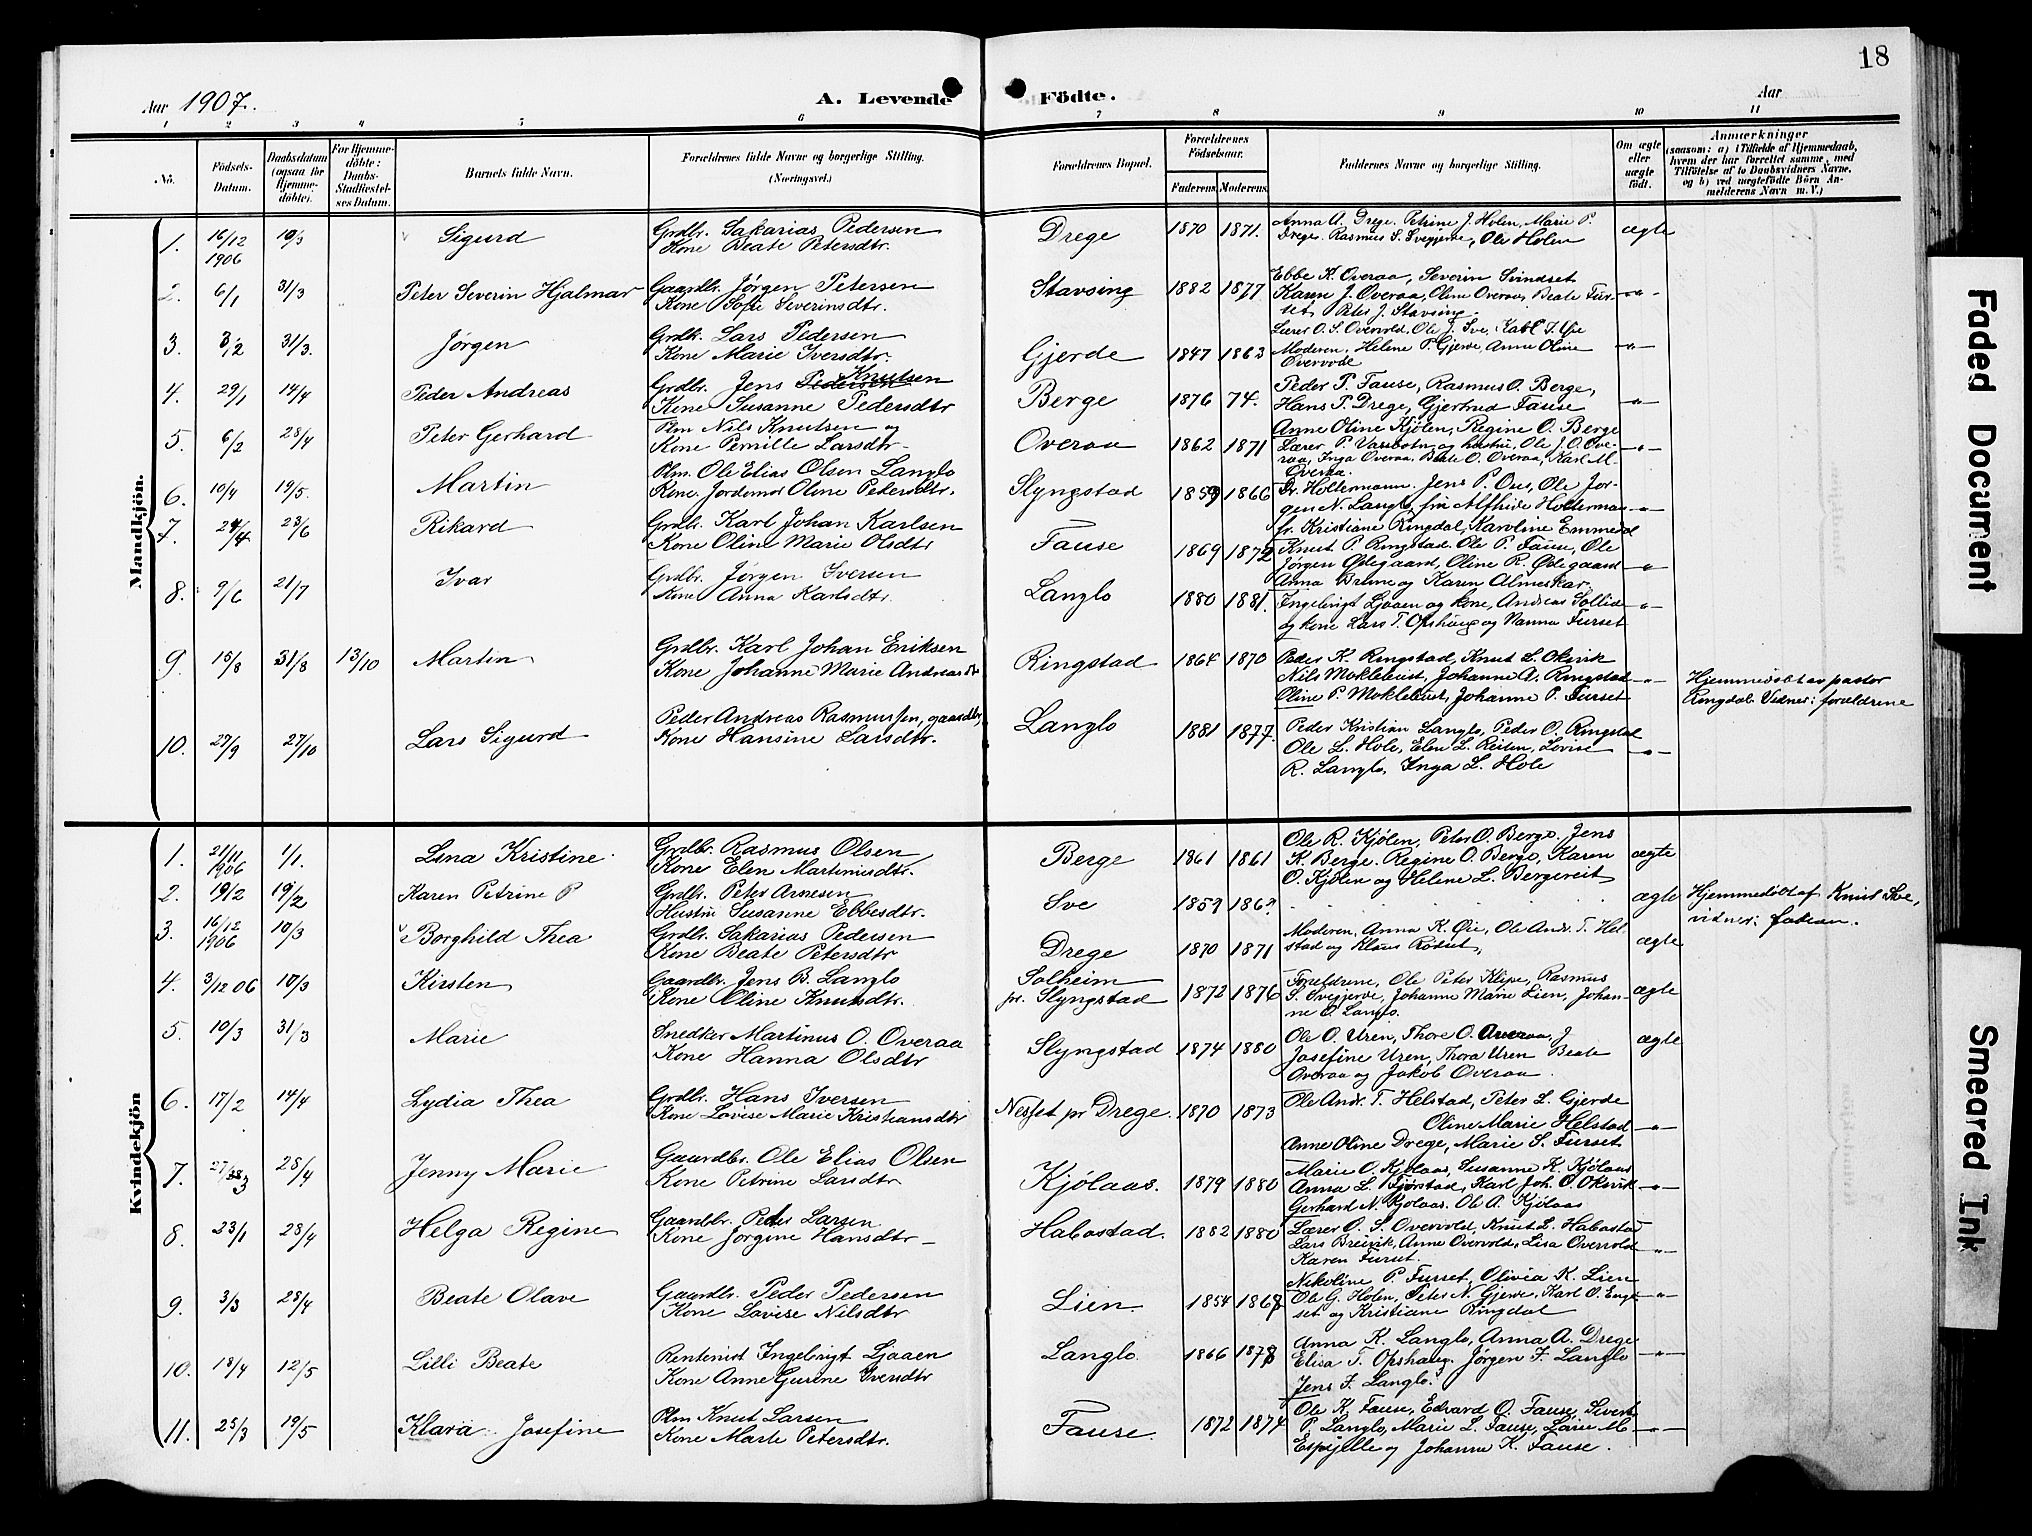 18
Aar 1907.
A. Levende Födte.
Aar
1 2 3 4 5 6 7 8 9 10 11
No.
Födsels-Datum.
Daabsdatum (ogsaa for Hjemme-döbte).
For Hjemme-döbte: Daabs-Stadfæstel-ses Datum.
Barnets fulde Navn.
Forældrenes fulde Navne og borgerlige Stilling. (Næringsvei.)
Forældrenes Bopæl.
Forældrenes Födselsaar.
Faderens. Moderens.
Faddernes Navne og borgerlige Stilling.
Om ægte eller uægte födt.
Anmærkninger
(saasom: a) i Tilfælde af Hjemmedaab,
hvem der har forrettet samme, med
Tilföielse af to Daabsvidners Navne,
og b) ved uægtefödte Börn An-
melderens Navn m. V.)
Mandkjön.
1. 16/12 1906 10/3 Sigurd Grdbr. Sakarias Pedersen
Kone Beate Petersdtr. Drege 1870 1871. Anna A. Drege. Petrine J. Holen, Marie P.
Drege. Rasmus S. Sveggerde, Ole Holen ægte
2. 6/1 31/3 Peter Severin Hjalmar Gaardbr. Jørgen Petersen
Kone Sofie Severinsdtr. Stavsing 1882 1877 Ebbe K. Overaa, Severin Svindset
Karen J. Overaa, Oline Overaa, Beate Fur-
set, Peter J. Stavsing. -"-
3. 3/2 31/3. Jørgen Grdbr. Lars Pedersen
Kone Marie Iversdtr. Gjerde 1847 1863 Lærer O. S. Overvold, Ole J. Sve, Karl J. Øie
Moderen, Helene P. Gjerde, Anne Oline
-"-
4. 29/1 14/4 Peder Andreas Grdbr. Jens Pedersen Knutsen
Kone Susanne Pedersdtr Berge 1876 74. Peder P. Fause, Rasmus O. Berge,
Hans P. Drege, Gjertrud Fause -"-
5. 6/2 28/4 Peter Gerhard Plm Nils Knutsen og
Kone Pernille Larsdtr Overaa 1862 1871 Anne Oline Kjølen, Regine O. Berge
Lærer P. Vassbotn og hustru, Ole J. O. Ove-
raa, Inga Overaa. Beate O. Overaa, Karl M.
Overaa. -"-
6. 10/4 19/5. Martin Plm. Ole Elias Olsen Langlo
Kone, Jordemor Oline Petersdtr. Slyngstad 1859 1866 Dr. Holtermann. Jens P. Ous, Ole Jør-
gen N. Langlo, fru Alfhide Holterman -"-
7. 24/4 23/6 Rikard Grdbr. Karl Johan Karlsen
Kone Oline Marie Olsdtr Fause 1869 1872 fr. Kristiane Ringdal, Karoline Emmerd
Knut P. Ringstad. Ole P. Fause, Ole
Jørgen Ødegaard, Oline R. Ødegaard -"-
8. 9/6 21/7 Ivar Grdbr. Jørgen Iversen
Kone Anna Karlsdtr. Langlo 1880 1881. Anna Brune og Karen Almeskar.
Ingebrigt Ljaaen og kone, Andreas Sollid
og kone Lars T. Opshaug og Nanna Furset -"-
9. 15/8 31/8 13/10 Martin Grdbr. Karl Johan Eriksen
Kone Johanne Marie Andreasdtr Ringstad 1864 1870 Peder K. Ringstad, Knut L. Okvik
Nils Moklebust, Johanne A. Ringstad
Oline P. Moklebust, Johanne P. Furset -"- Hjemmedøbt av pastor
Ringdal. Vidner: forældrene
10. 27/9 27/10 Lars Sigurd Peder Andreas Rasmussen, gaardbr,
Kone Hansine Larsdtr. Langlo 1881 1877. Peder Kristian Langlo, Peder O. Ringstad
Ole L. Hole, Elen L. Reiten, Lovise
R. Langlo, Inga L. Hole -"-
Kvindekjön
1. 21/11 1906 1/1. Lina Kristine Grdbr. Rasmus Olsen
Kone Elen Martinusdtr. Berge 1861 1861 Ole R. Kjølen, Peter O. Berge. Jens
K. Berge. Regine O. Berge, Karen
O. Kjølen og Helene L. Bergereit ægte
2. 19/2 19/2 Karen Petrine P Grdbr. Peter Arnesen
Hustru Susanne Ebbesdtr. Sve 1859 ægte Hjemmedøbt af Knud Sve,
vidner: faderen.
3. 16/12 1906 10/3 Borghild Thea Grdbr. Sakarias Pedersen
Kone Beate Petersdtr Drege 1870 1871 Moderen, Anna K. Øie, Ole Andr. T. Hel-
stad og Klaus Rødset, ægte
4. 3/12 06 10/3 Kirsten Gaardbr. Jens B. Langlo
Kone Oline Knutsdtr. Solheim
pr. Slyngstad 1872 1876 Forældrene, Ole Peter Klipe, Rasmus
S. Svejjerde, Johanne Marie Lien, Johan-
ne O. Langlo. ægte
5. 10/3 31/3 Marie Snedker Martinus O. Overaa
Kone Hanna Olsdtr Slyngstad 1874 1880 Ole O. Uren, Thore O. Overaa, J
Josefine Uren, Thora Uren Beate
Overaa og Jakob Overaa. ægte
6. 17/2 14/4 Lydia Thea Grdbr. Hans Iversen
Kone Lovise Marie Kristiansdtr Nesset pr Drege. 1870 1873 Ole Andr. T. Helstad, Peter L. Gjerde
Oline Marie Helstad
Anne Oline Drege, Marie S. Furset -"-
7. 27/3 28/4 Jenny Marie Gaardbr. Ole Elias Olsen
Kone Petrine Larsdtr Kjölaas. 1879 1880 Marie O. Kjölaas, Susanne K. Kjölaas
Anna L. Fjørstad, Karl Joh. O. Okvik
Gerhard N. Kjölaas. Ole A. Kjölaas -"-
8. 23/1 28/4 Helga Regine Gaardbr. Peder Larsen
Kone Jørgine Hansdtr Habostad. 1882 1880 Lærer O. S. Overvold, Knut L. Habostad
Lars Breivik, Anne Overvold, Lisa Overvold
Karen Furset. -"-
9. 3/3 28/4 Beate Olave Gaardbr. Peder Pedersen
Kone Lovise Nilsdtr Lien. 1854 1868 Nikoline P. Furset, Olivia K. Lien
Ole G. Holen, Peter N. Gjerde, Karl O. Eng-
set og Kristiane Ringdal -"-
10. 18/4 12/5 Lilli Beate Rentenist Ingebrigt Ljaaen
Kone Anne Gurine Iversdtr Langlo. 1866 1878 Anna K. Langlo, Anna A. Drege
Elisa T. Opshaug. Jørgen J. Langlo
Jens J. Langlo. -"-
11. 25/3 19/5 Klara Josefine Plm Knut Larsen
Kone Marte Petersdtr. Fause. 1872 1874 Ole K. Fause, Edvard O. Fause, Sivert
P. Langlo, Marie L. Fause, Marie M
og Johanne K. Fause. -"-
Faded Document
Smeared Ink